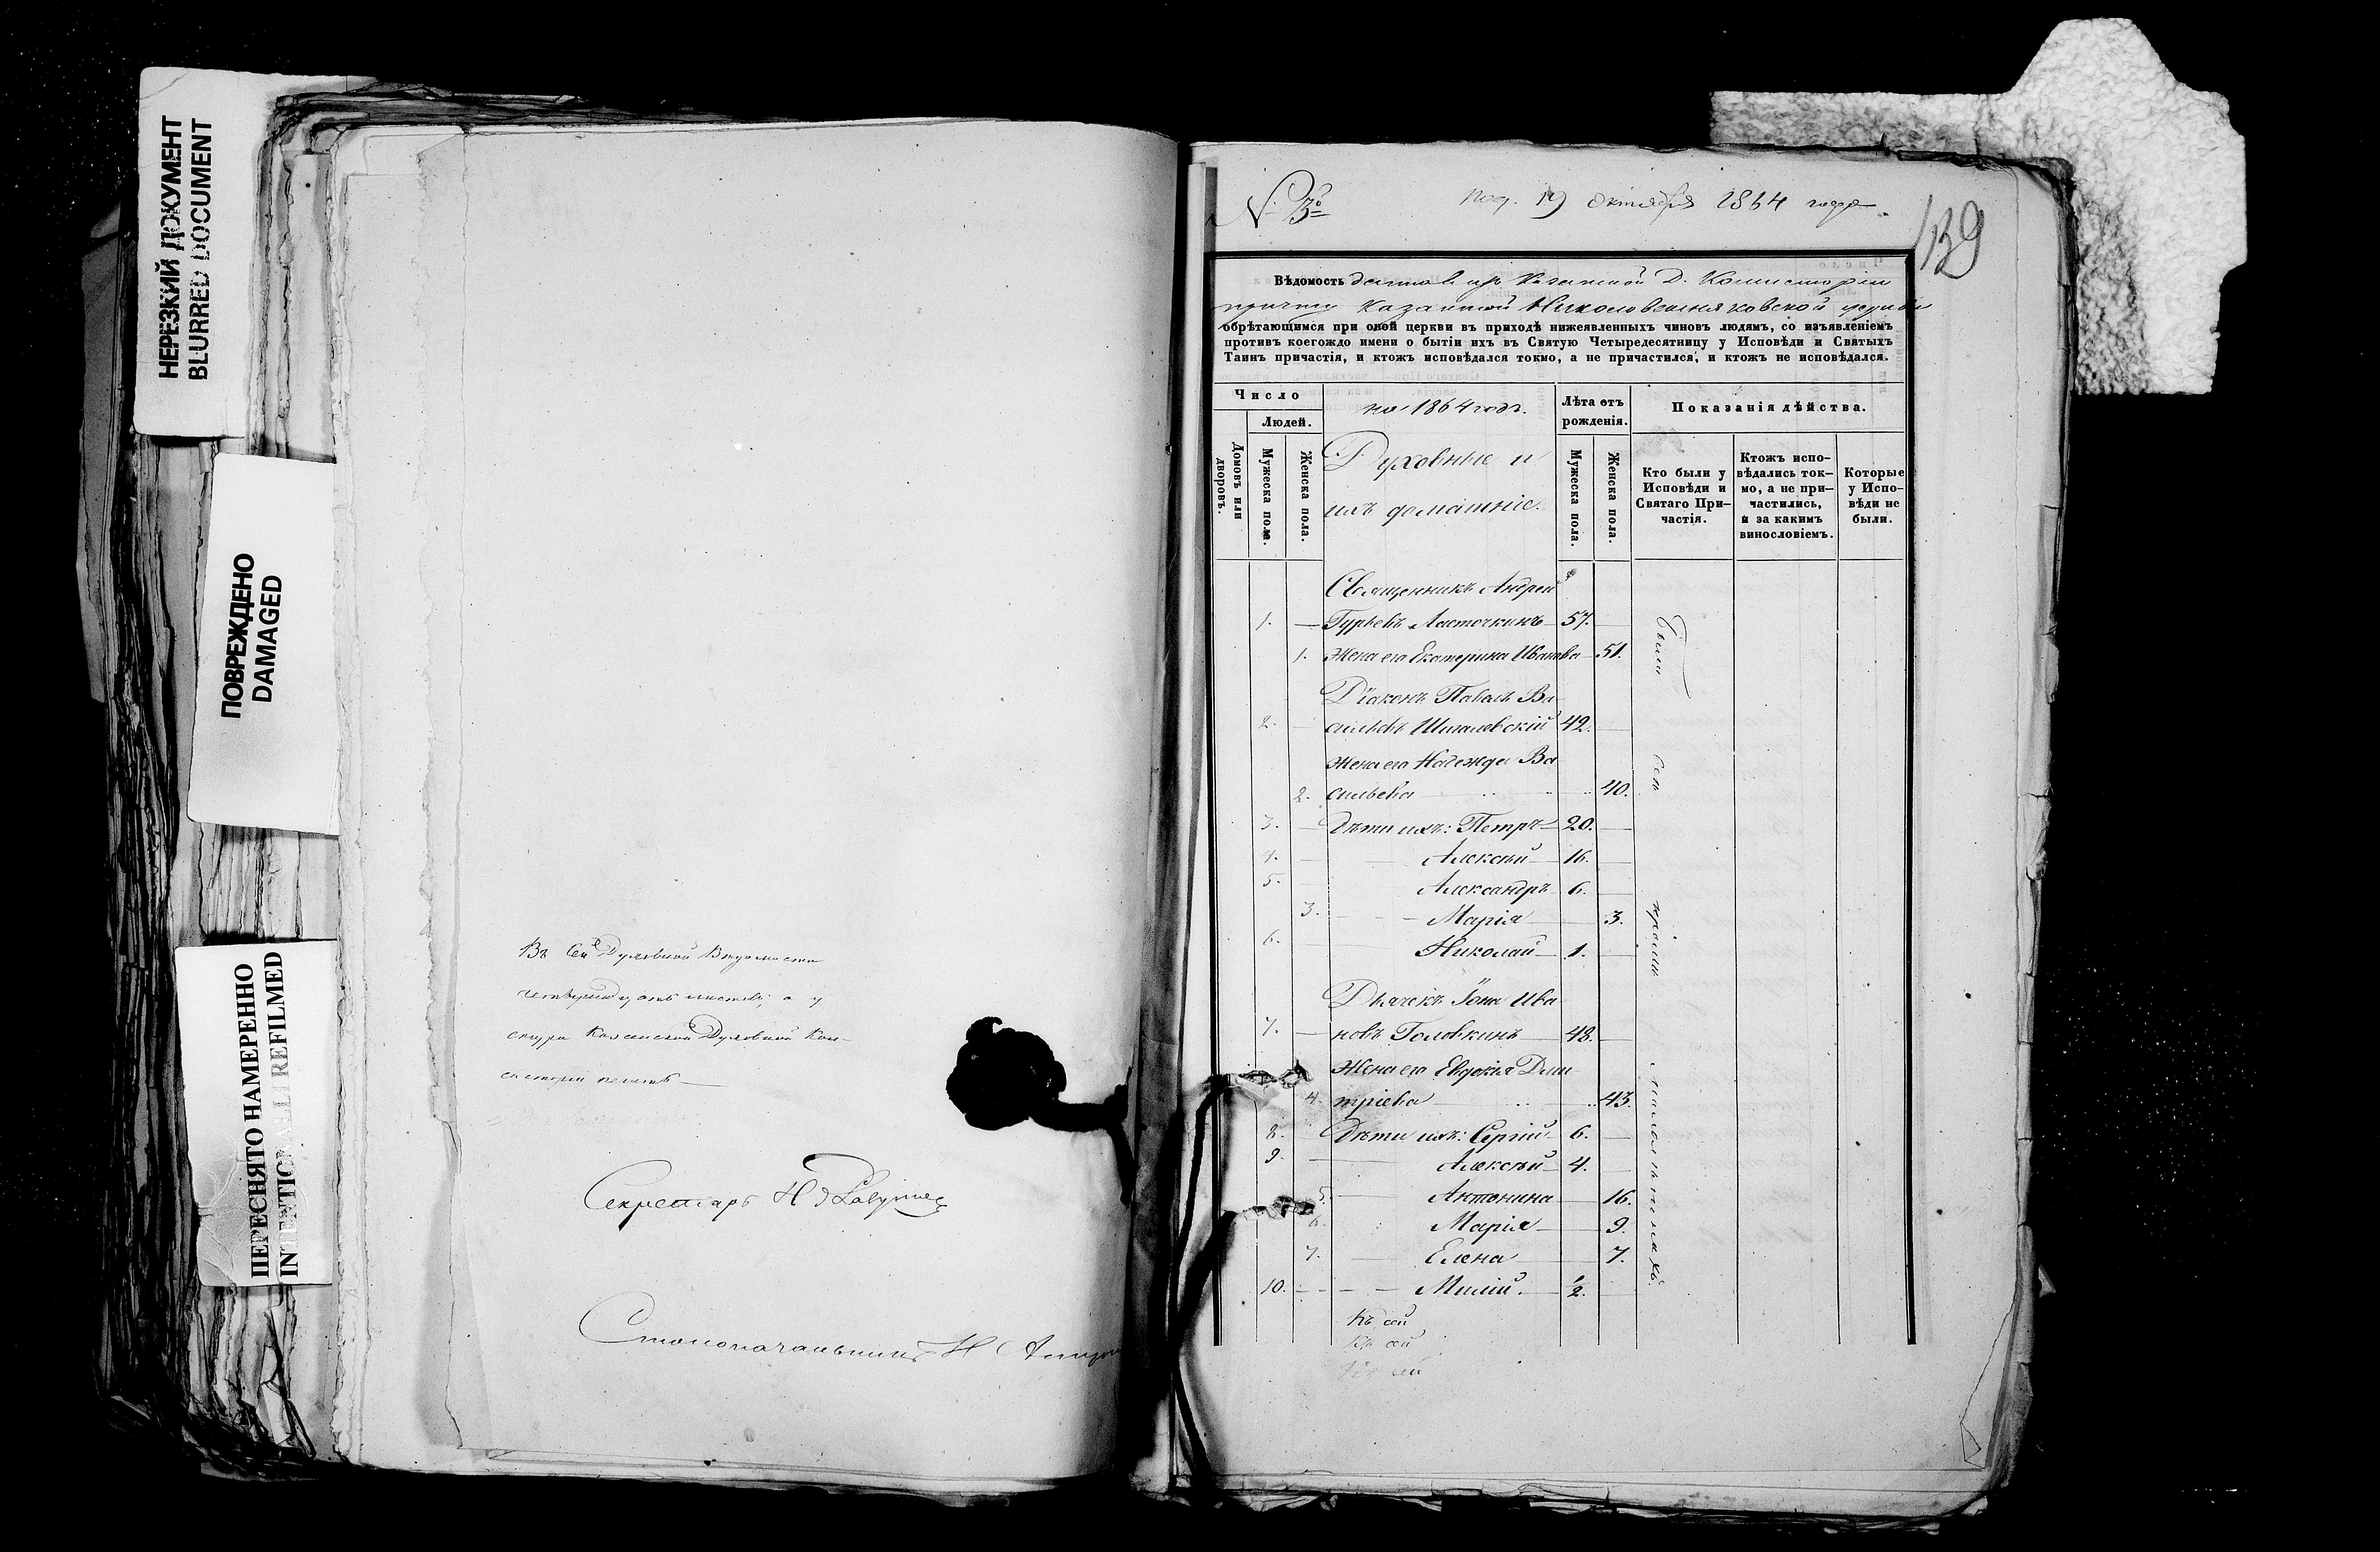 НЕРЕЗКИЙ ДОКУМЕНТ
BLURRED DOCUMENT
ПОВРЕЖДЕНО
DAMAGED
ПЕРЕСНЯТО НАМЕРЕННО
INTENTIONALLY REFILMED
Въ сей Духовной Ведомости
листовъ, а у
снура Казанской Духовной Кон-
систоріи печать
Секретарь Н
Столоначальникъ Н
№ 3й
Под. 19 октября 1864 года.
139
Вѣдомость дана изъ Казанской Д. Консисторіи
причту Казанской Николовешняковской церкви
обрѣтающимся при овой церкви въ приходѣ нижеявленныхъ чиновъ людямъ, со изъявленіемъ
противъ коегождо имени о бытіи ихъ въ Святую Четыредесятницу у Исповѣди и Святыхъ
Таинъ причастія, и ктожъ исповѣдался токмо, а не причастился, и ктожъ не исповѣдался.
Число
Людей.
Домовъ или дворовъ.
Мужеска пола.
Женска пола.
на 1864 годъ.
Духовные и
ихъ домашніе.
Лѣта отъ рожденія.
Мужеска пола.
Женска пола.
Показанія дѣйства.
Кто были у Исповѣди и Святаго При-частія.
Ктожъ испо-вѣдались ток-мо, а не при-частились, и за какимъ винословіемъ.
Которые у Испо-вѣди не были.
Священникъ Андрей
1. — Гурьевъ Ласточкинъ 57.
1. Жена его Екатерина Иванова 51.
Діаконъ Павелъ Ва-
2. сильевъ Шигалевскій 42.
Жена его Надежда Ва
2. сильева 40.
3. Дѣти ихъ: Петръ 20.
4. Алексѣй 16.
5. Александръ 6.
3. Марія 3.
6. Николай 1.
Дьячекъ Іона Ива
7. новъ Головкинъ 48.
Жена его Евдокія Дми
4. тріева 43.
8. Дѣти ихъ: Сергій 6.
9. Алексѣй 4.
5. Антонина 16.
6. Марія 9.
7. Елена 7.
10. Милій. ½.
Къ сей
Къ сей
Къ сей
Были всѣ кромѣ малолѣтнихъ.